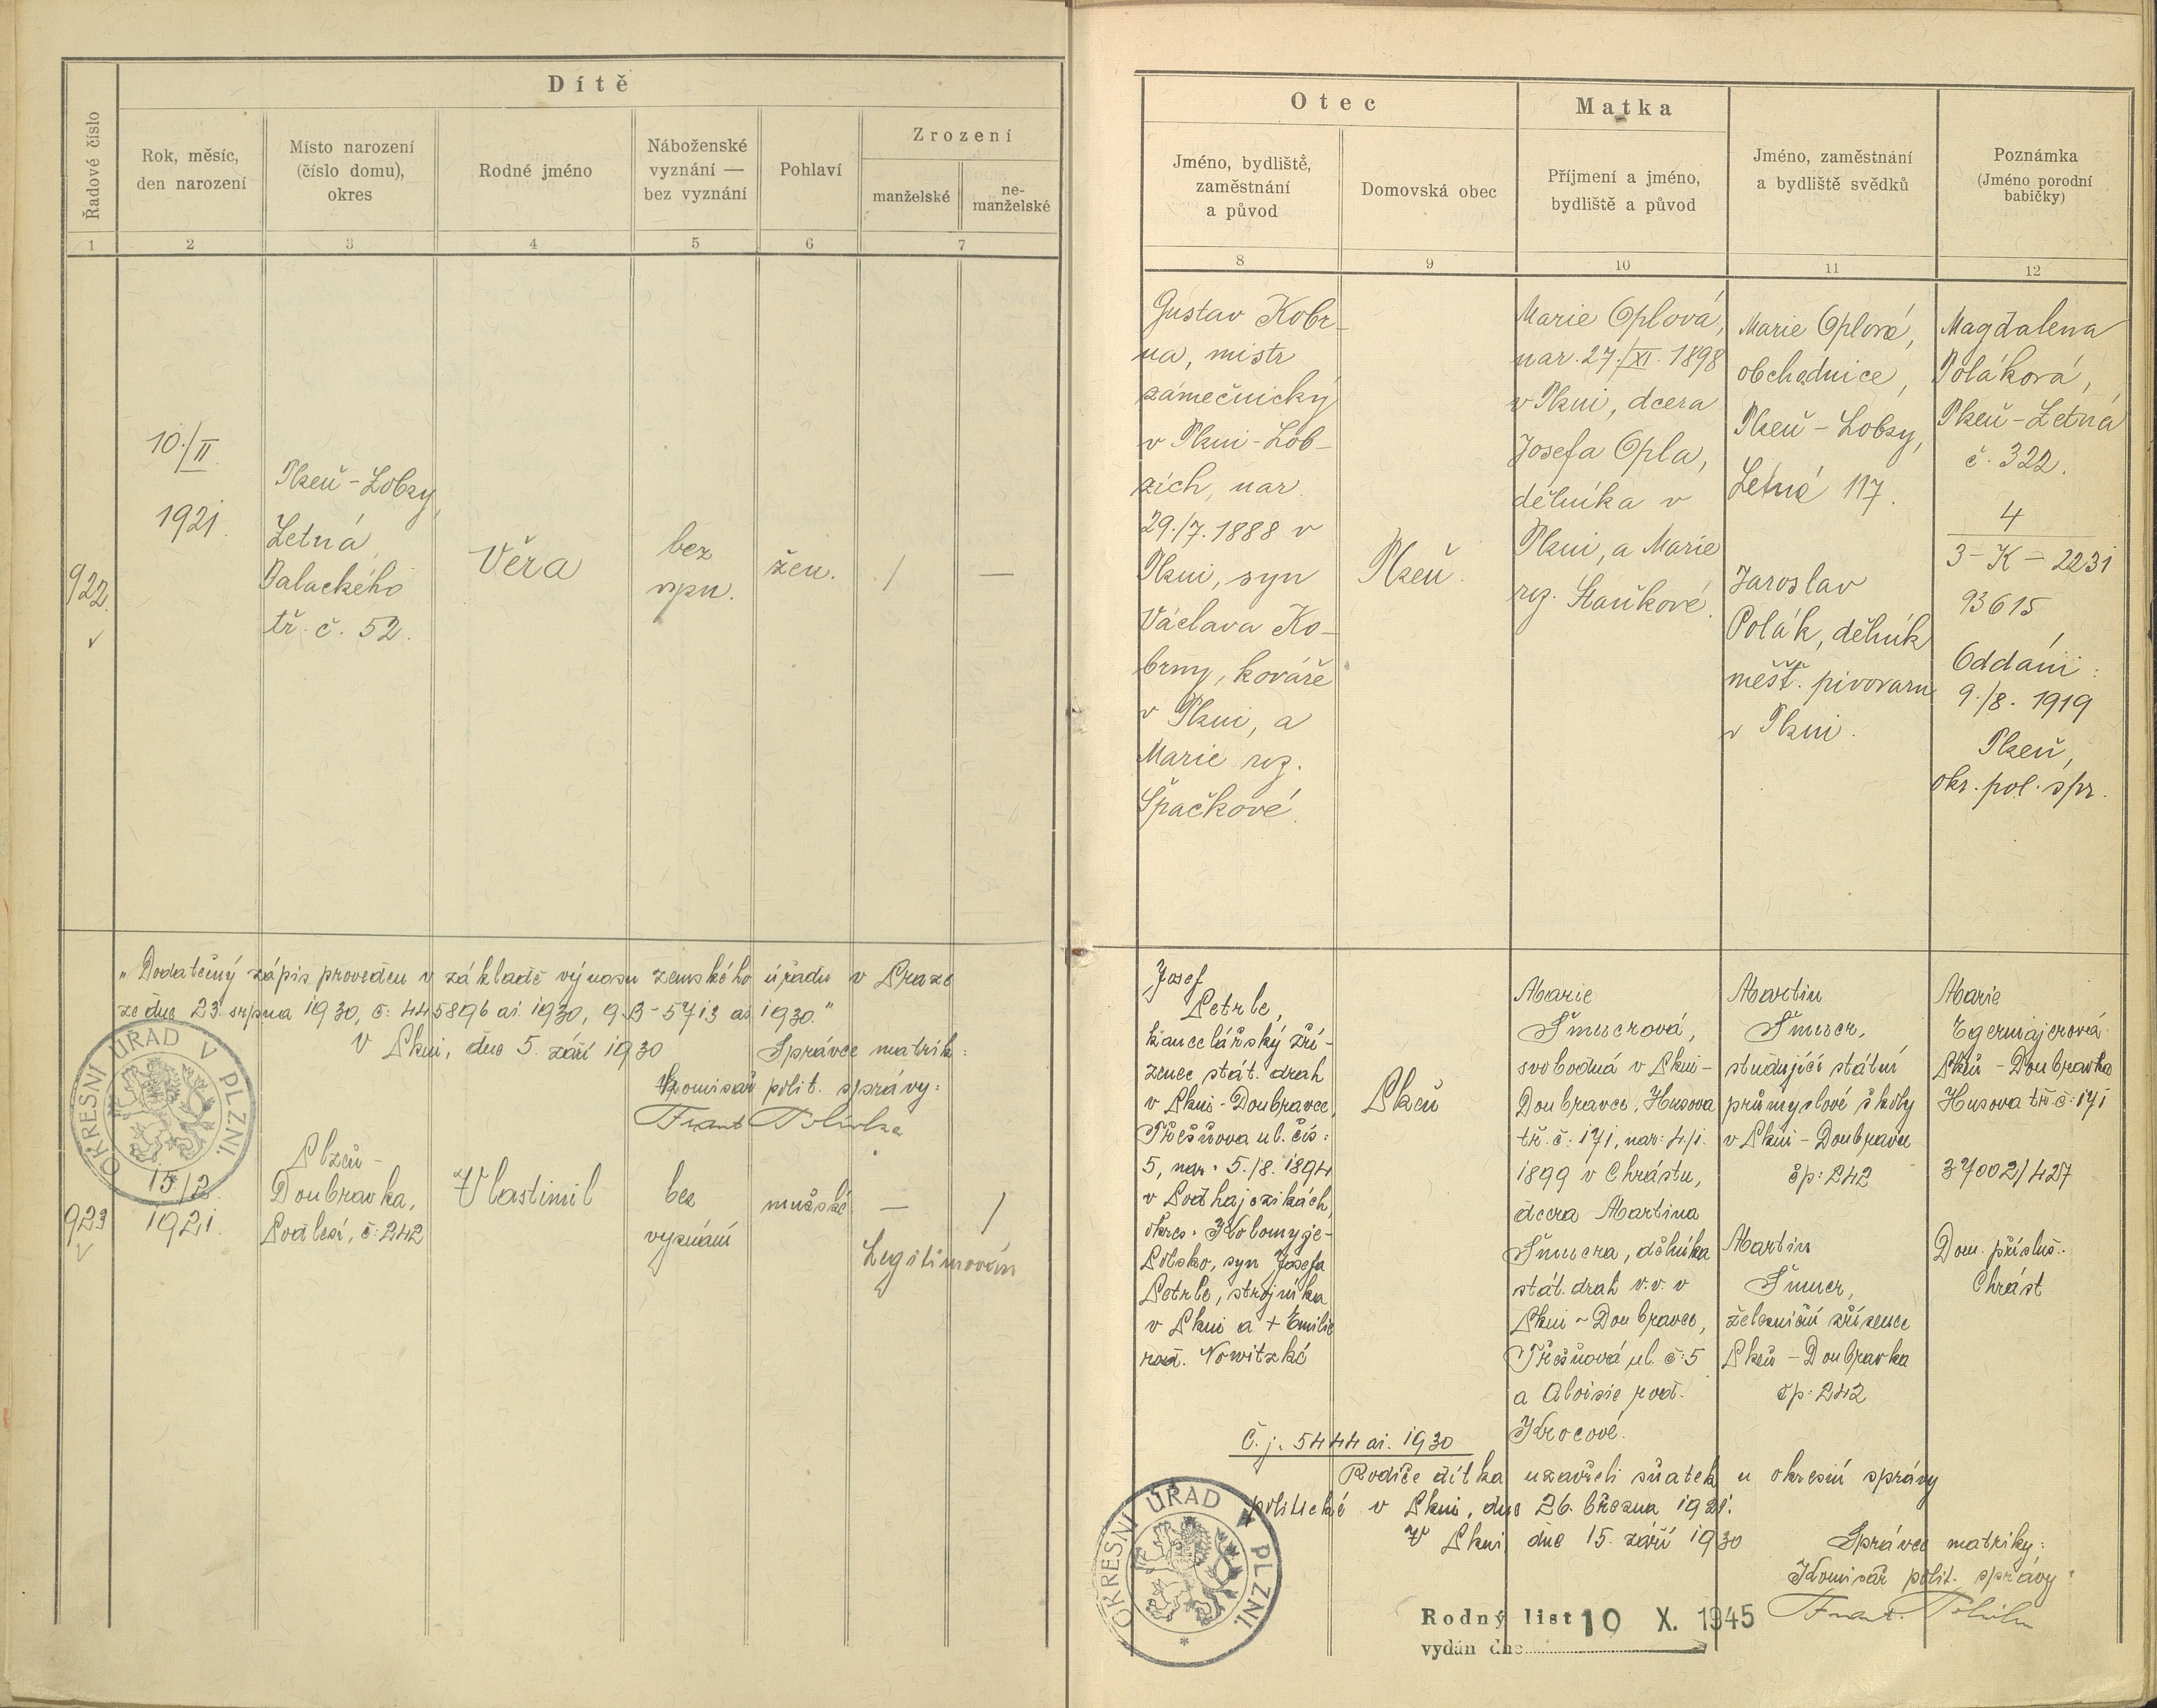 Dítě
Řadové číslo
Rok, měsíc,
den narození
Místo narození
(číslo domu),
okres
Rodné jméno
Náboženské
vyznání —
bez vyznání
Pohlaví
Zrození
manželské
ne-
manželské
1 2 3 4 5 6 7
922.
10./II.
1921.
Plzeň - Lobzy,
Letná
Palackého
tř. č. 52.
Věra
bez
vyzn.
žen.
/
—
„Dodatečný zápis proveden v základě výnosu zemského úřadu v Praze
ze dne 23. srpna 1930, č: 445896 ai 1930, 9.B - 5713 ai 1930."
V Plzni, dne 5. září 1930
Správce matrik:
Komisař polit. správy:
OKRESNÍ ÚŘAD V PLZNI.
923
15/2
1921.
Plzeň -
Doubravka,
Podlesí, č: 242
Vlastimil
bez
vyznání
mužské
—
/
Legitimován
Otec
Matka
Jméno, bydliště,
zaměstnání
a původ
Domovská obec
Příjmení a jméno,
bydliště a původ
Jméno, zaměstnání
a bydliště svědků
Poznámka
(Jméno porodní
babičky)
8 9 10 11 12
Gustav Kobr-
na, mistr
zámečnický
v Plzni - Lob-
zích, nar.
29./7. 1888 v
Plzni, syn
Václava Ko-
brny, kováře
v Plzni, a
Marie roz.
Špačkové.
Plzeň.
Marie Oplová,
nar. 27./XI. 1898
v Plzni, dcera
Josefa Opla,
dělníka v
Plzni, a Marie
roz.
Marie Oplová,
obchodnice,
Plzeň - Lobzy,
Letná 117.
Jaroslav
Polák, dělník
měšť. pivovaru
v Plzni.
Magdalena
Poláková,
Plzeň - Letná
č. 322.
4
3 - K - 2231
93615
Oddáni:
9./8. 1919
Plzeň,
okr. pol. spr.
Josef
Petrle,
kancelářský zří-
zenec stát. drah
v Plzni - Doubravce,
Třešňova ul. čís:
5, nar. 5./8. 1894
v Podhajczikách,
okres. Kolomyje -
Polsko, syn Josefa
Petrle, strojníka
v Plzni a + Emilie
rod. Nowitzké
Plzeň
Marie
Šmucrová,
svobodná v Plzni -
Doubravce, Husova
tř. č: 171, nar: 4/1.
1899 v Chrástu,
dcera Martina
Šmucra, dělníka
stát. drah v.v. v
Plzni - Doubravce,
Třešňová ul. č: 5
a Aloisie rod.
Krocové.
Martin
Šmucr,
studující státní
průmyslové školy
v Plzni - Doubravce
čp: 242
Martin
Šmucr,
železniční zřízenec
Plzeň - Doubravka
čp: 242
Marie
Egermajerová
Plzeň - Doubravka
Husova tř. č: 171
37002/427
Dom. přísluš.:
Chrást
Č. j. 5444 ai. 1930
Rodiče dítka uzavřeli sňatek u okresní správy
politické v Plzni, dne 26. března 1921.
V Plzni, dne 15. září 1930
Správce matriky:
Komisař polit. správy
OKRESNÍ ÚŘAD V PLZNI.
*
Rodný list 10 X. 1945
vydán dne